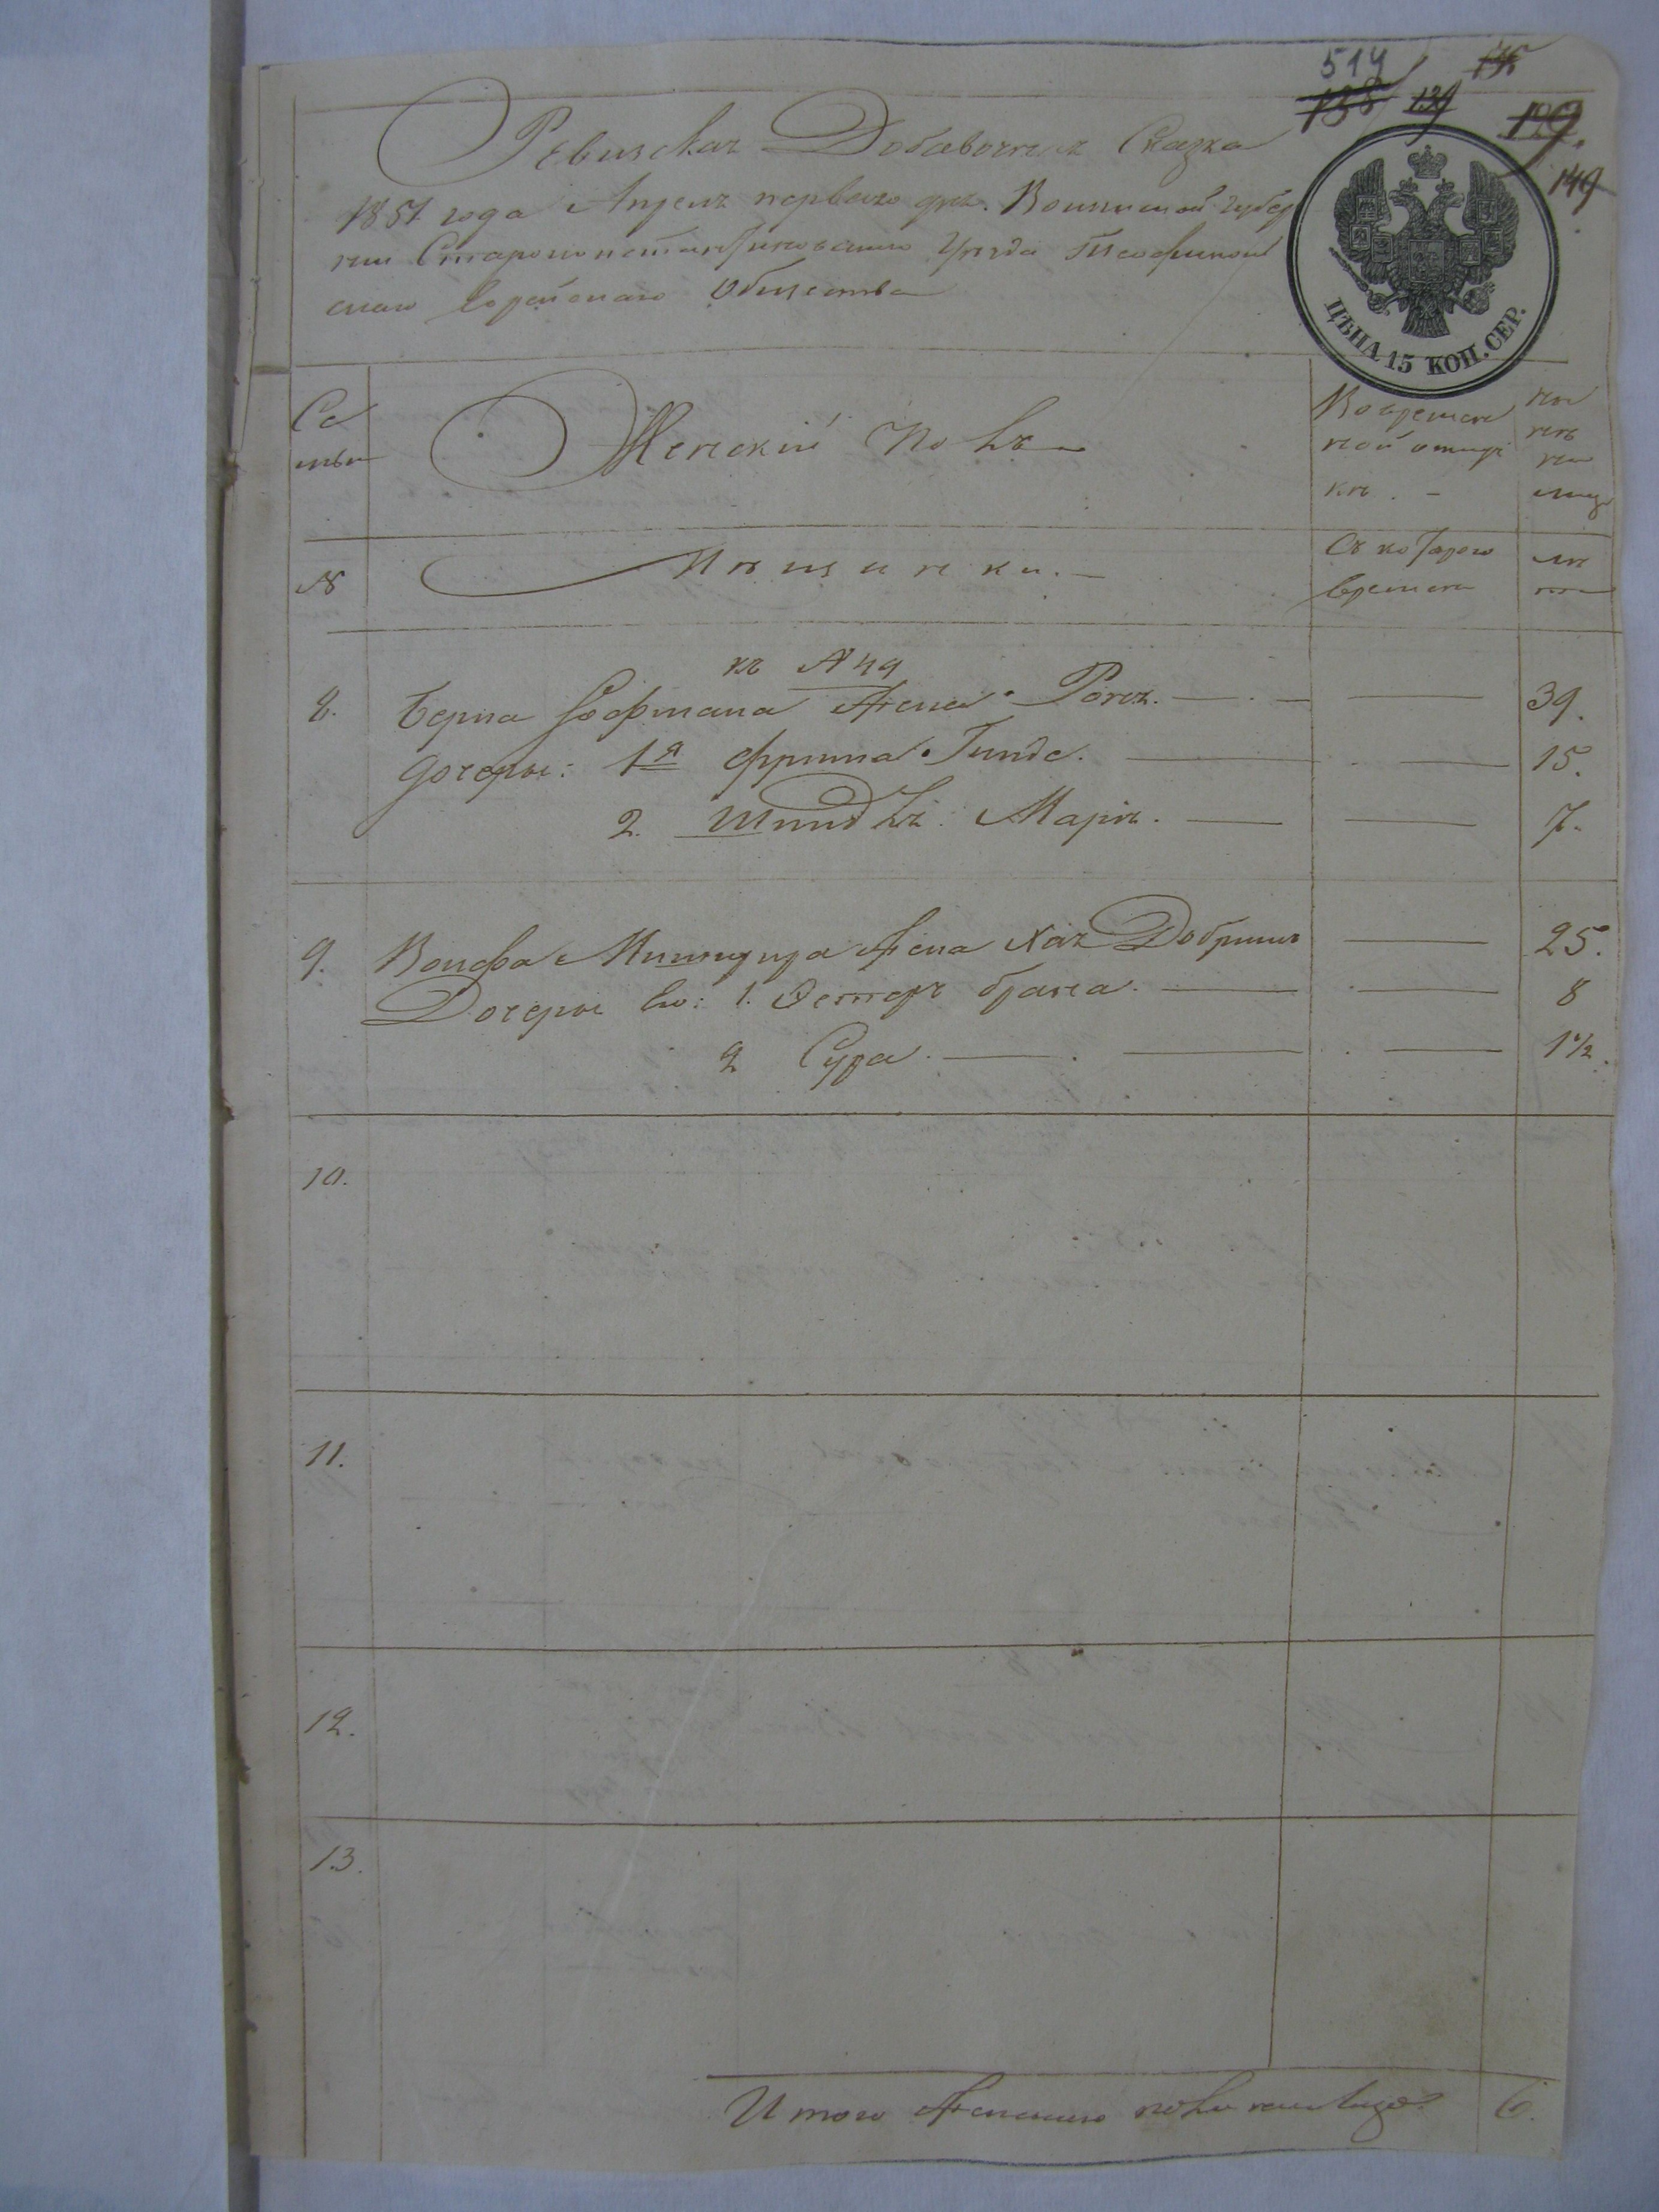 519 138 139 175 149
Ревизская Добавочная Сказка
1851 года Апреля первого дня. Волынской губер
нии Староконстантиновского Уезда Теофиполь
ского Еврейского Общества
ЦѢНА 15 КОП. СЕР.
Се
мьи
Женскій Полъ
Во времен
ной отлуч
кѣ. -
ны
нѣ
ли
№
Мѣщанки. -
Съ котораго
времени
лѣ
та
къ № 49
8. Берка Гофмана Жена Ройзя. 39.
дочери: 1я Фрима Гинде. 15.
2. Шиндля Марія. 7.
9. Вольфа Жена Хая Добриш 25.
Дочери Его: 1. Эстеръ брана. 8
2 Сура. 1 1/2.
10.
11.
12.
13.
Итого Женского пола 6.